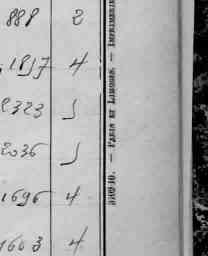 888 2
1817 4
2323 5
2036 5
1696 4
1603 4
PARIS ET LIMOGES. — IMPRIMERIE